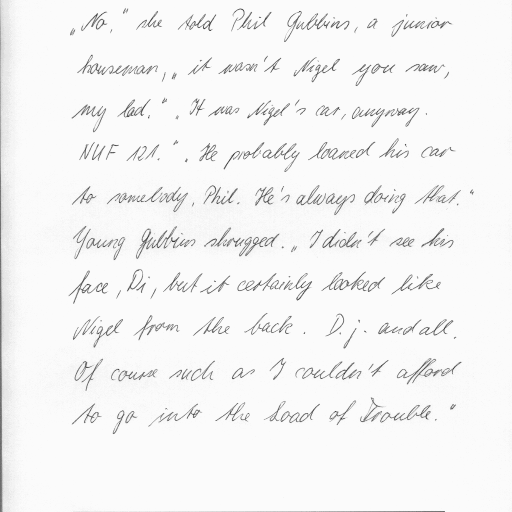 „No," she told Phil Gubbins, a junior
houseman, „it wasn't Nigel you saw,
my lad." „It was Nigel's car, anyway.
NUF 121." „He probably loaned his car
to somebody, Phil. He's always doing that."
Young Gubbins shrugged. „I didn't see his
face, Di, but it certainly looked like
Nigel from the back. D.j. and all.
Of course such as I couldn't afford
to go into the Load of Trouble."